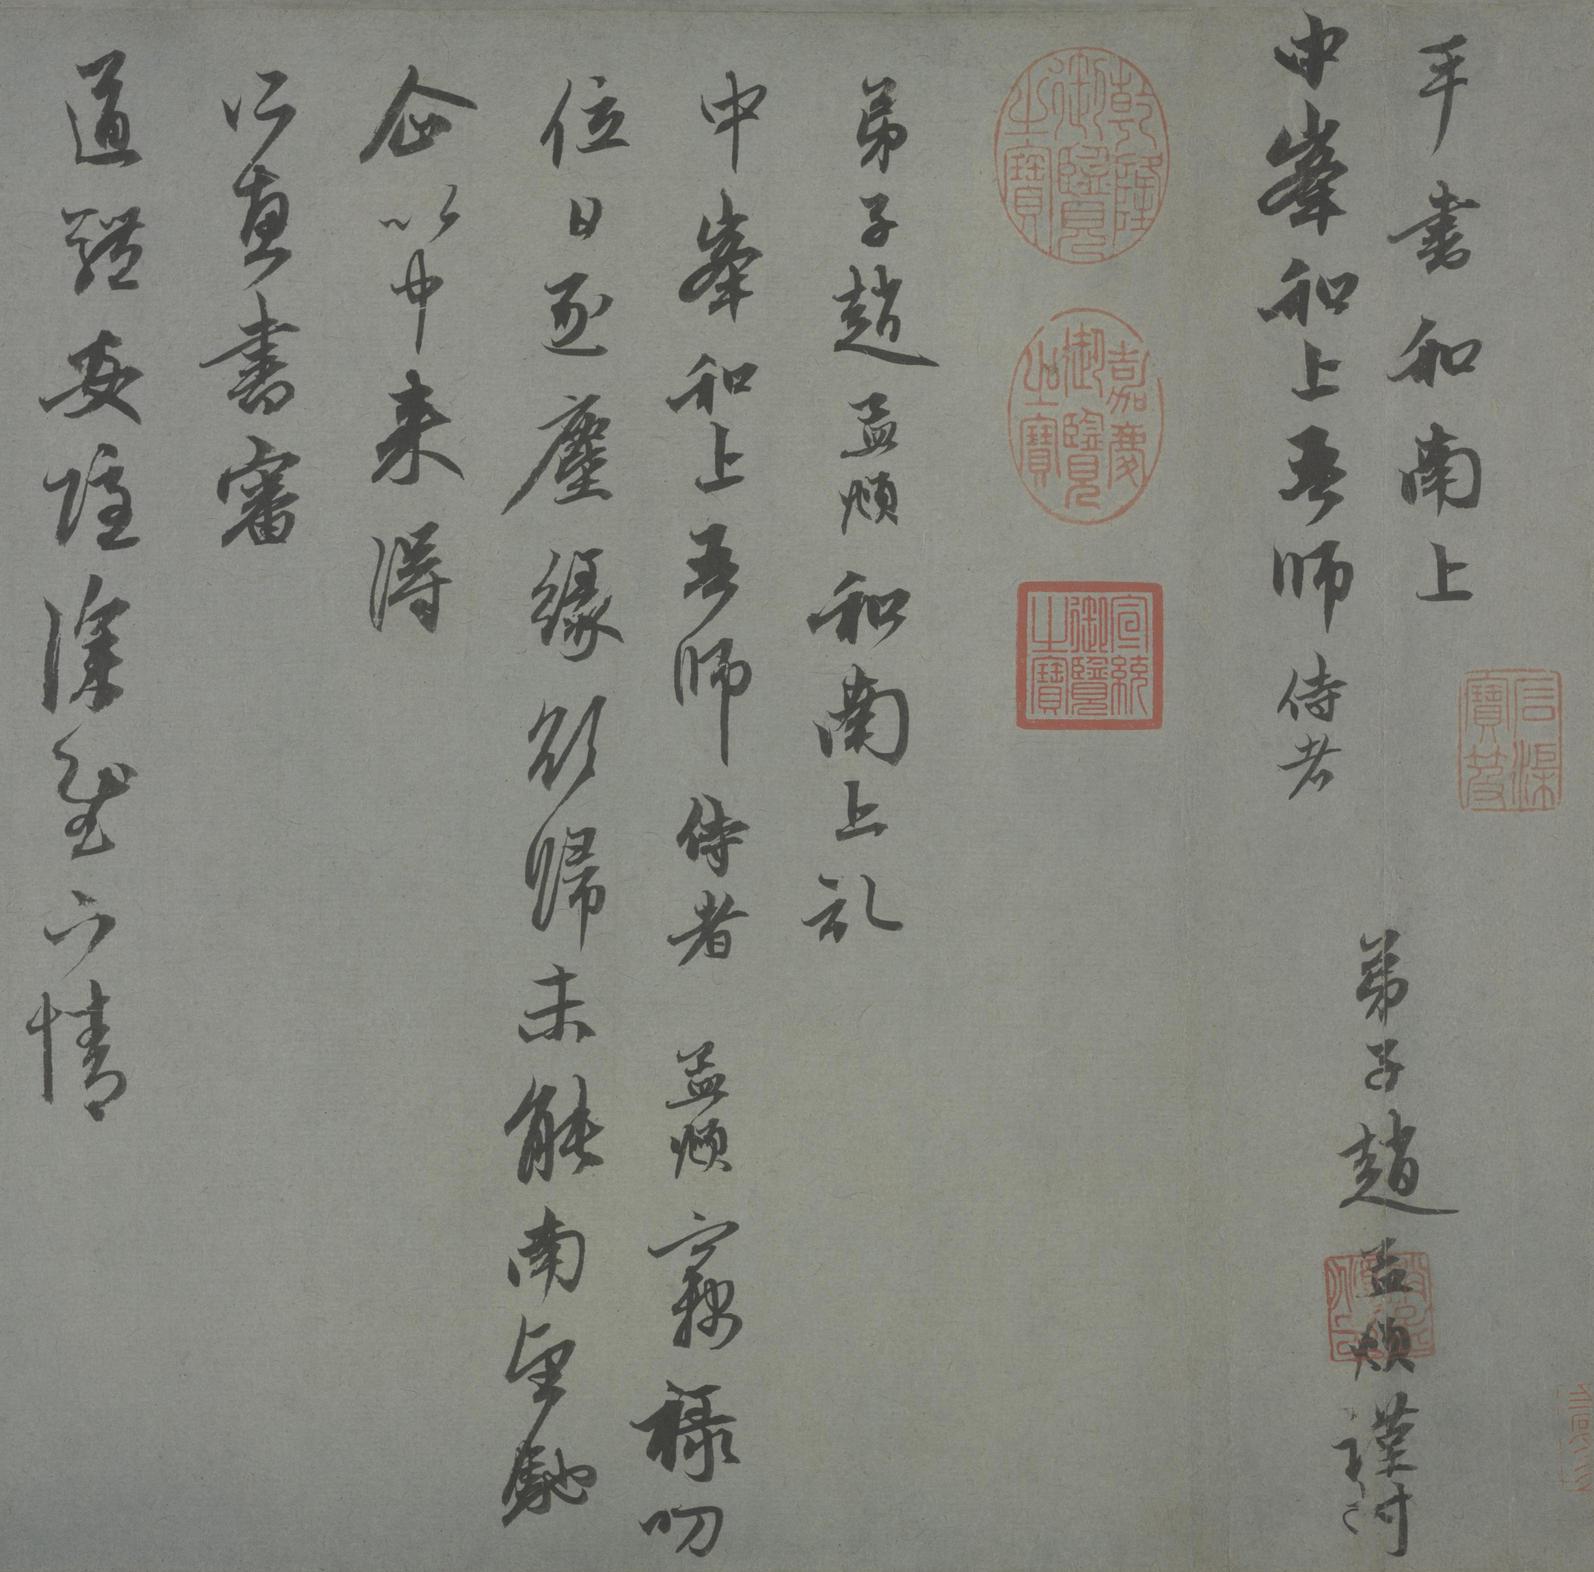 手書和南上
中峯和上吾師侍者
弟子趙孟頫謹封
石渠寶笈
乾隆御覽之寶
嘉慶御覽之寶
宣統御覽之寶
弟子趙孟頫和南上記
中峯和上吾師侍者孟頫竊祿叨
位日逐塵緣欲歸未能南望馳
企以中來得
所惠書審
道體安隱深慰下情